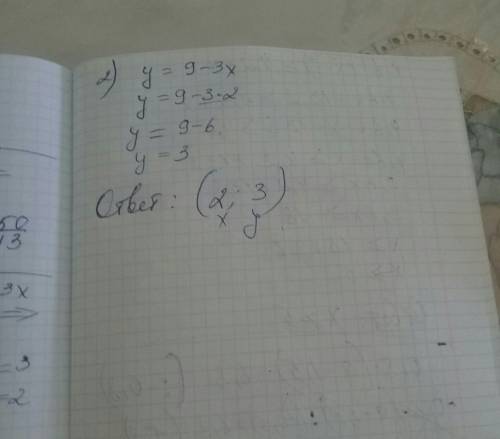 50
13
3x
=>
=3
=2
2) y = 9-3x
y = 9-3·2
y = 9-6
y = 3
Ответ: (2; 3)
x y